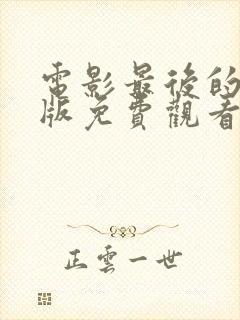 電影最後的
版免費觀看
正雲一世